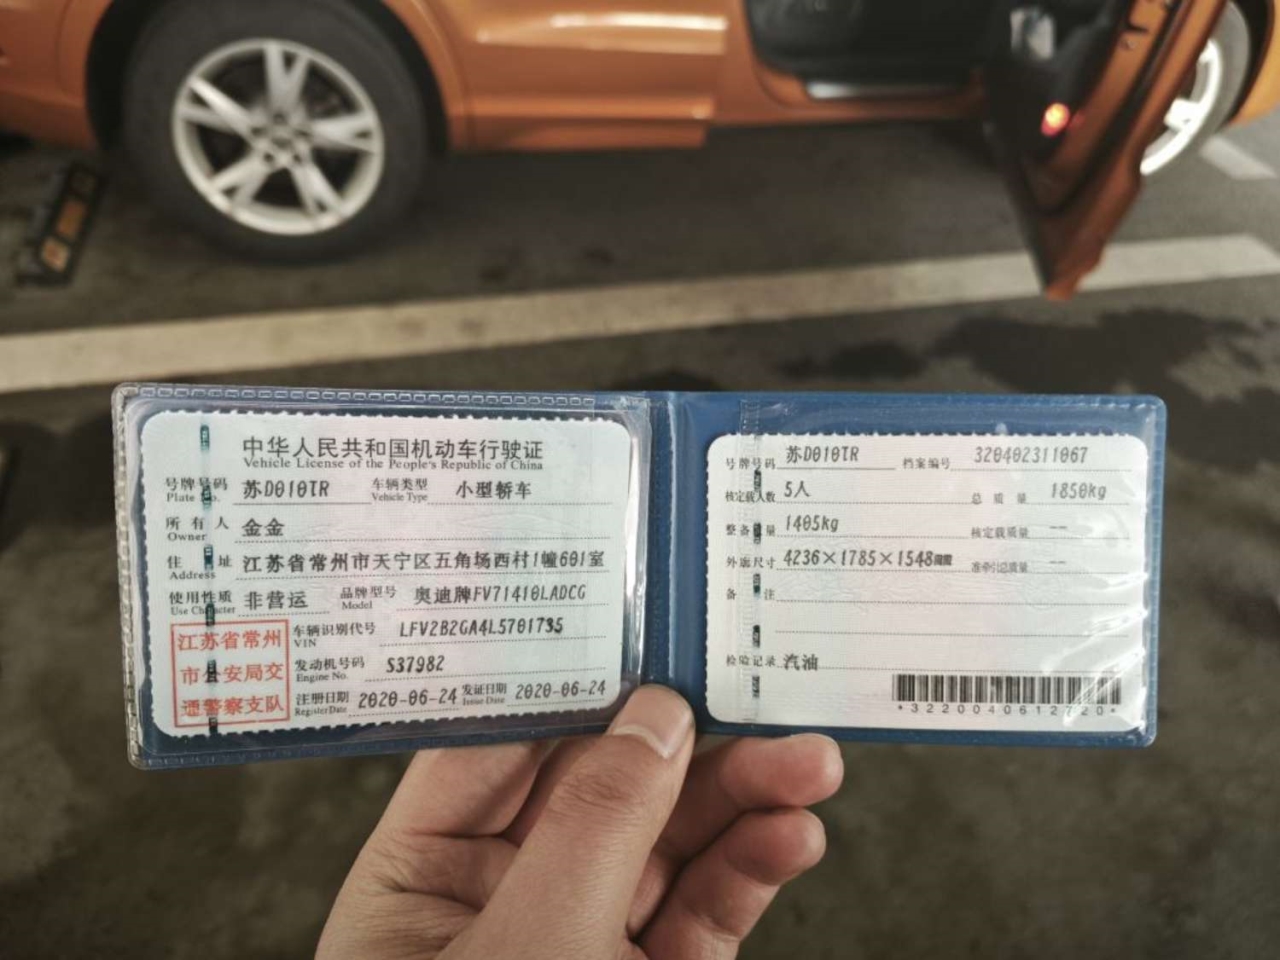 中华人民共和国机动车行驶证
Vehicle License of the People's Republic of China
号牌号码 Plate No. 苏D010TR 车辆类型 Vehicle Type 小型轿车
所有人 Owner 金金
住址 Address 江苏省常州市天宁区五角场西村1幢601室
使用性质 Use Character 非营运 品牌型号 Model 奥迪牌FV71410LADCG
江苏省常州
市公安局交
通警察支队
车辆识别代号 VIN LFV2B2GA4L5701735
发动机号码 Engine No. S37982
注册日期 Register Date 2020-06-24 发证日期 Issue Date 2020-06-24
号牌号码 苏D010TR 档案编号 320402311067
核定载人数 5人 总质量 1850kg
整备质量 1405kg 核定载质量 --
外廓尺寸 4236×1785×1548 准牵引总质量 --
备注
检验记录 汽油
*3220040612720*